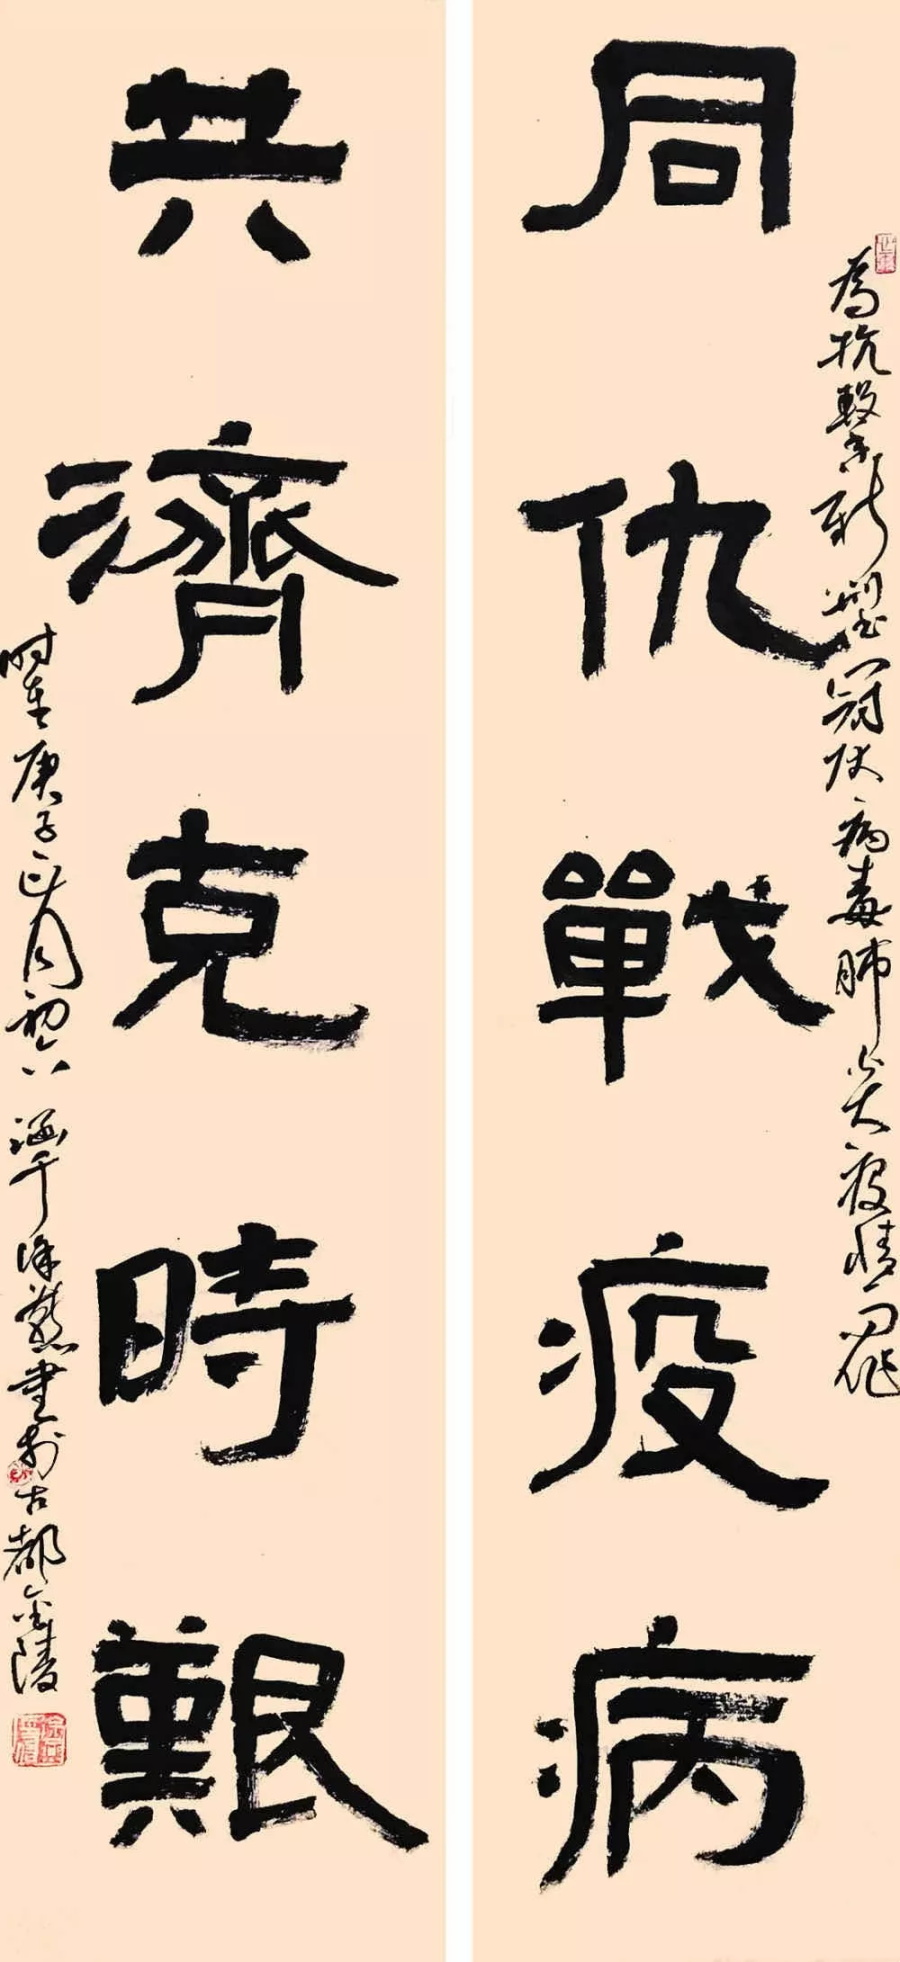 同仇戰疫病
共濟克時艱
為抗擊新型冠狀病毒肺炎疫情而作
时在庚子正月初六海上徐燕書於古都金陵